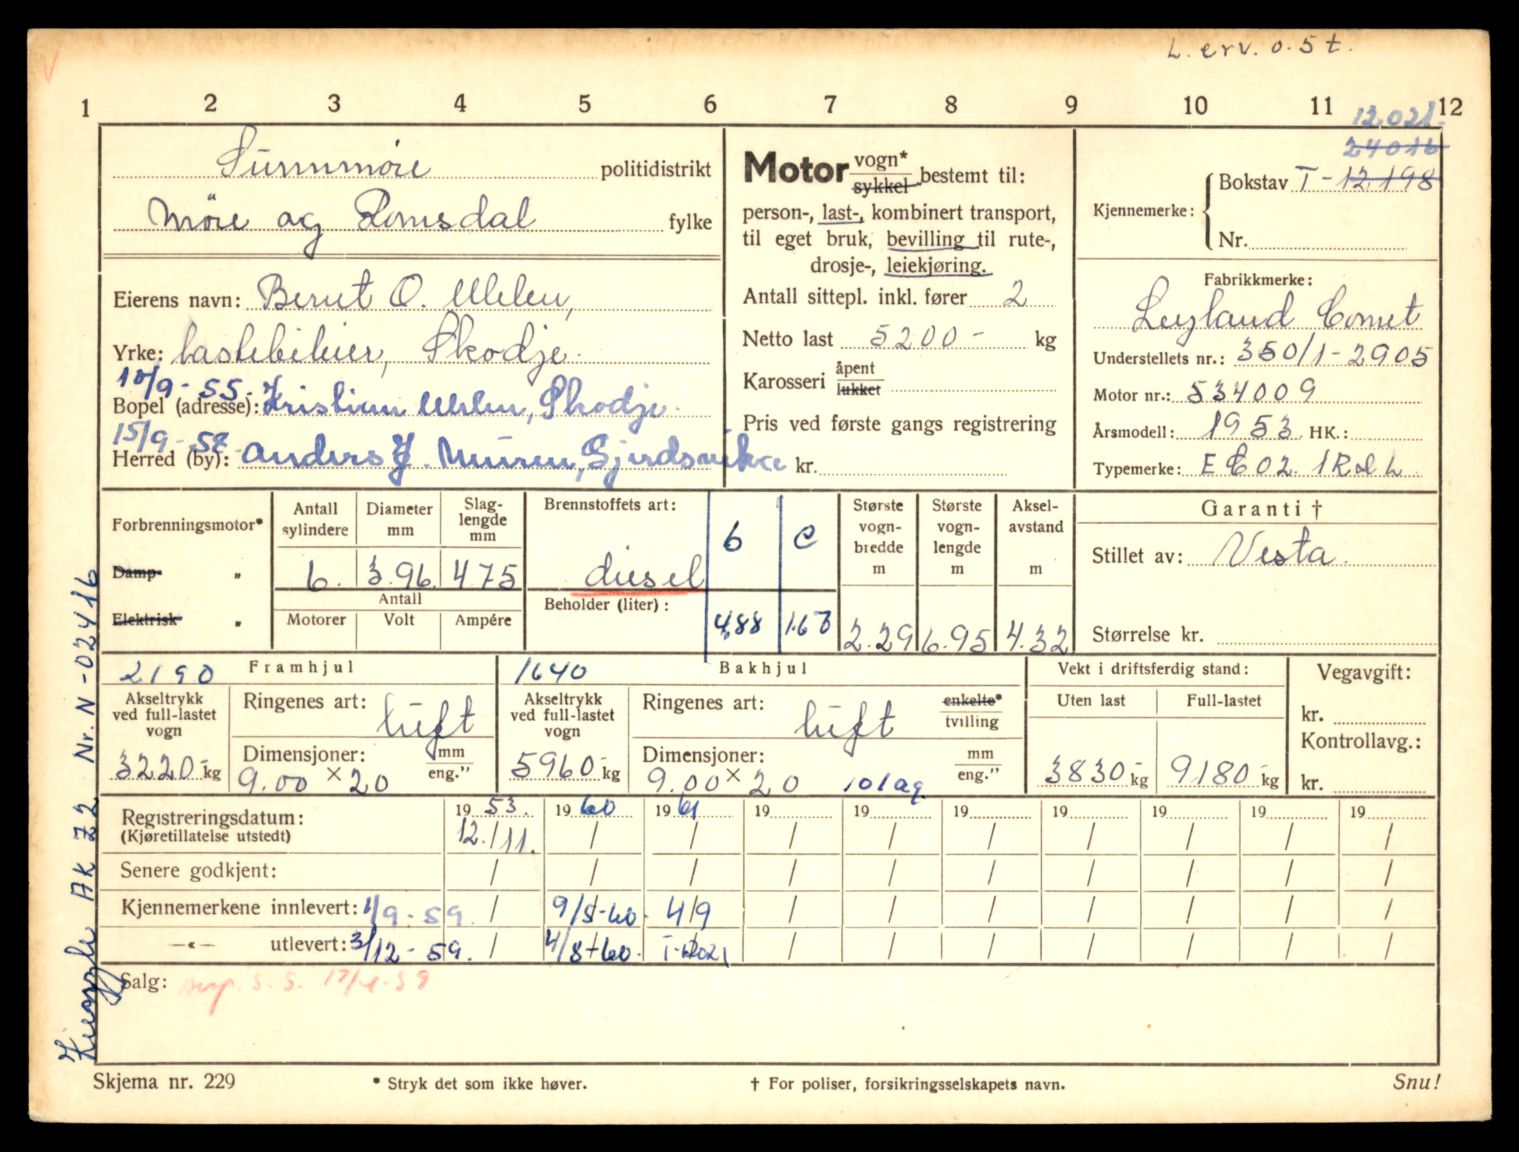 L. erv. 0.5 t.
1 2 3 4 5 6 7 8 9 10 11 12
12.021.
24016
Sunnmøre politidistrikt
Møre og Romsdal fylke
Motor vogn* sykkel bestemt til:
person-, last-, kombinert transport,
til eget bruk, bevilling til rute-,
drosje-, leiekjøring.
Antall sittepl. inkl. fører 2
Netto last 5200- kg
Karosseri åpent lukket
Pris ved første gangs registrering
kr.
Kjennemerke: Bokstav T-12.198
Nr.
Eierens navn: Bernt O.
Yrke: lastebileier, Skodje.
10/9-55. Kristian
Bopel (adresse): Skodje.
15/9-58 Anders J.
Herred (by):
Fabrikkmerke:
Leyland Comet
Understellets nr.: 350/1-2905
Motor nr.: 534009
Årsmodell: 1953 HK.:
Typemerke: ECO2. 1R
Forbrenningsmotor*
Damp- "
Elektrisk "
Antall sylindere 6.
Diameter mm 3.96
Slaglengde mm 475
Antall
Motorer Volt Ampére
Brennstoffets art:
diesel
Beholder (liter):
b c
4,88 1.67
Største vognbredde m 2.29
Største vognlengde m 6.95
Akselavstand m 4.32
Garanti †
Stillet av: Vesta.
Størrelse kr.
2190 Framhjul
Akseltrykk ved full-lastet vogn
3220- kg
Ringenes art: luft
Dimensjoner: mm eng."
9.00 × 20
1640 Bakhjul
Akseltrykk ved full-lastet vogn
5960- kg
Ringenes art: luft enkelte* tvilling
Dimensjoner: mm eng."
9.00 × 20 10 lag.
Vekt i driftsferdig stand:
Uten last Full-lastet
3830- kg 9180- kg
Vegavgift:
kr.
Kontrollavg.:
kr.
Registreringsdatum: 19 53. 19 60 19 61 19 19 19 19 19 19 19
(Kjøretillatelse utstedt) 12./11. / / / / / / / / /
Senere godkjent: / / / / / / / / / /
Kjennemerkene innlevert: 1/9-59. / 9/5-60. 4/9 / / / / / / /
—«— utlevert: 3/12-59. / 4/8-60. T-12021 / / / / / / /
Salg: 17/4-59
AK 72 Nr. N-02416
Skjema nr. 229
* Stryk det som ikke høver.
† For poliser, forsikringsselskapets navn.
Snu!